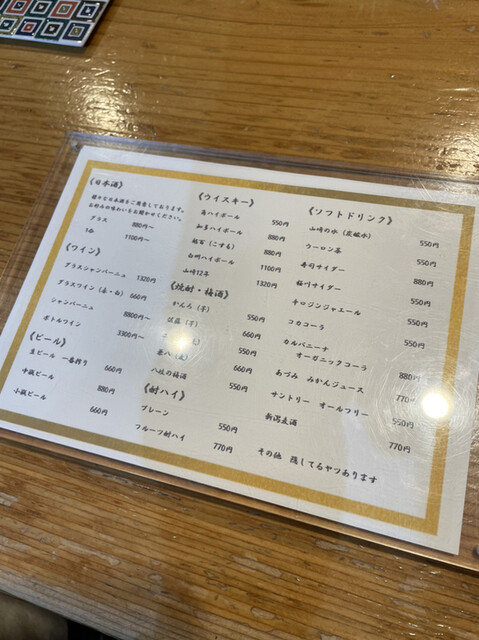 《日本酒》
様々な日本酒をご用意しております。
お好みの味わいをお聞かせください。
グラス 880円〜
1合 1100円〜
《ワイン》
グラスシャンパーニュ 1320円
グラスワイン（赤・白） 660円
シャンパーニュ 8800円〜
ボトルワイン 3300円〜
《ビール》
生ビール 一番搾り 660円
中瓶ビール 880円
小瓶ビール 660円
《ウイスキー》
角ハイボール 550円
知多ハイボール 880円
(こする) 880円
白州ハイボール 1100円
山崎12年 1320円
《焼酎・梅酒》
かんろ（芋） 550円
（芋） 550円
（麦） 550円
八岐の梅酒 660円
《酎ハイ》 550円
プレーン 550円
フルーツ酎ハイ 770円
《ソフトドリンク》
山崎の水（炭酸水） 550円
ウーロン茶 550円
寿司サイダー 880円
梅りサイダー 550円
キロジンジャエール 550円
コカコーラ 550円
カルパニーナ
オーガニックコーラ 880円
あづみ みかんジュース
サントリー オールフリー 550円
新潟麦酒 770円
その他 隠してるヤツあります